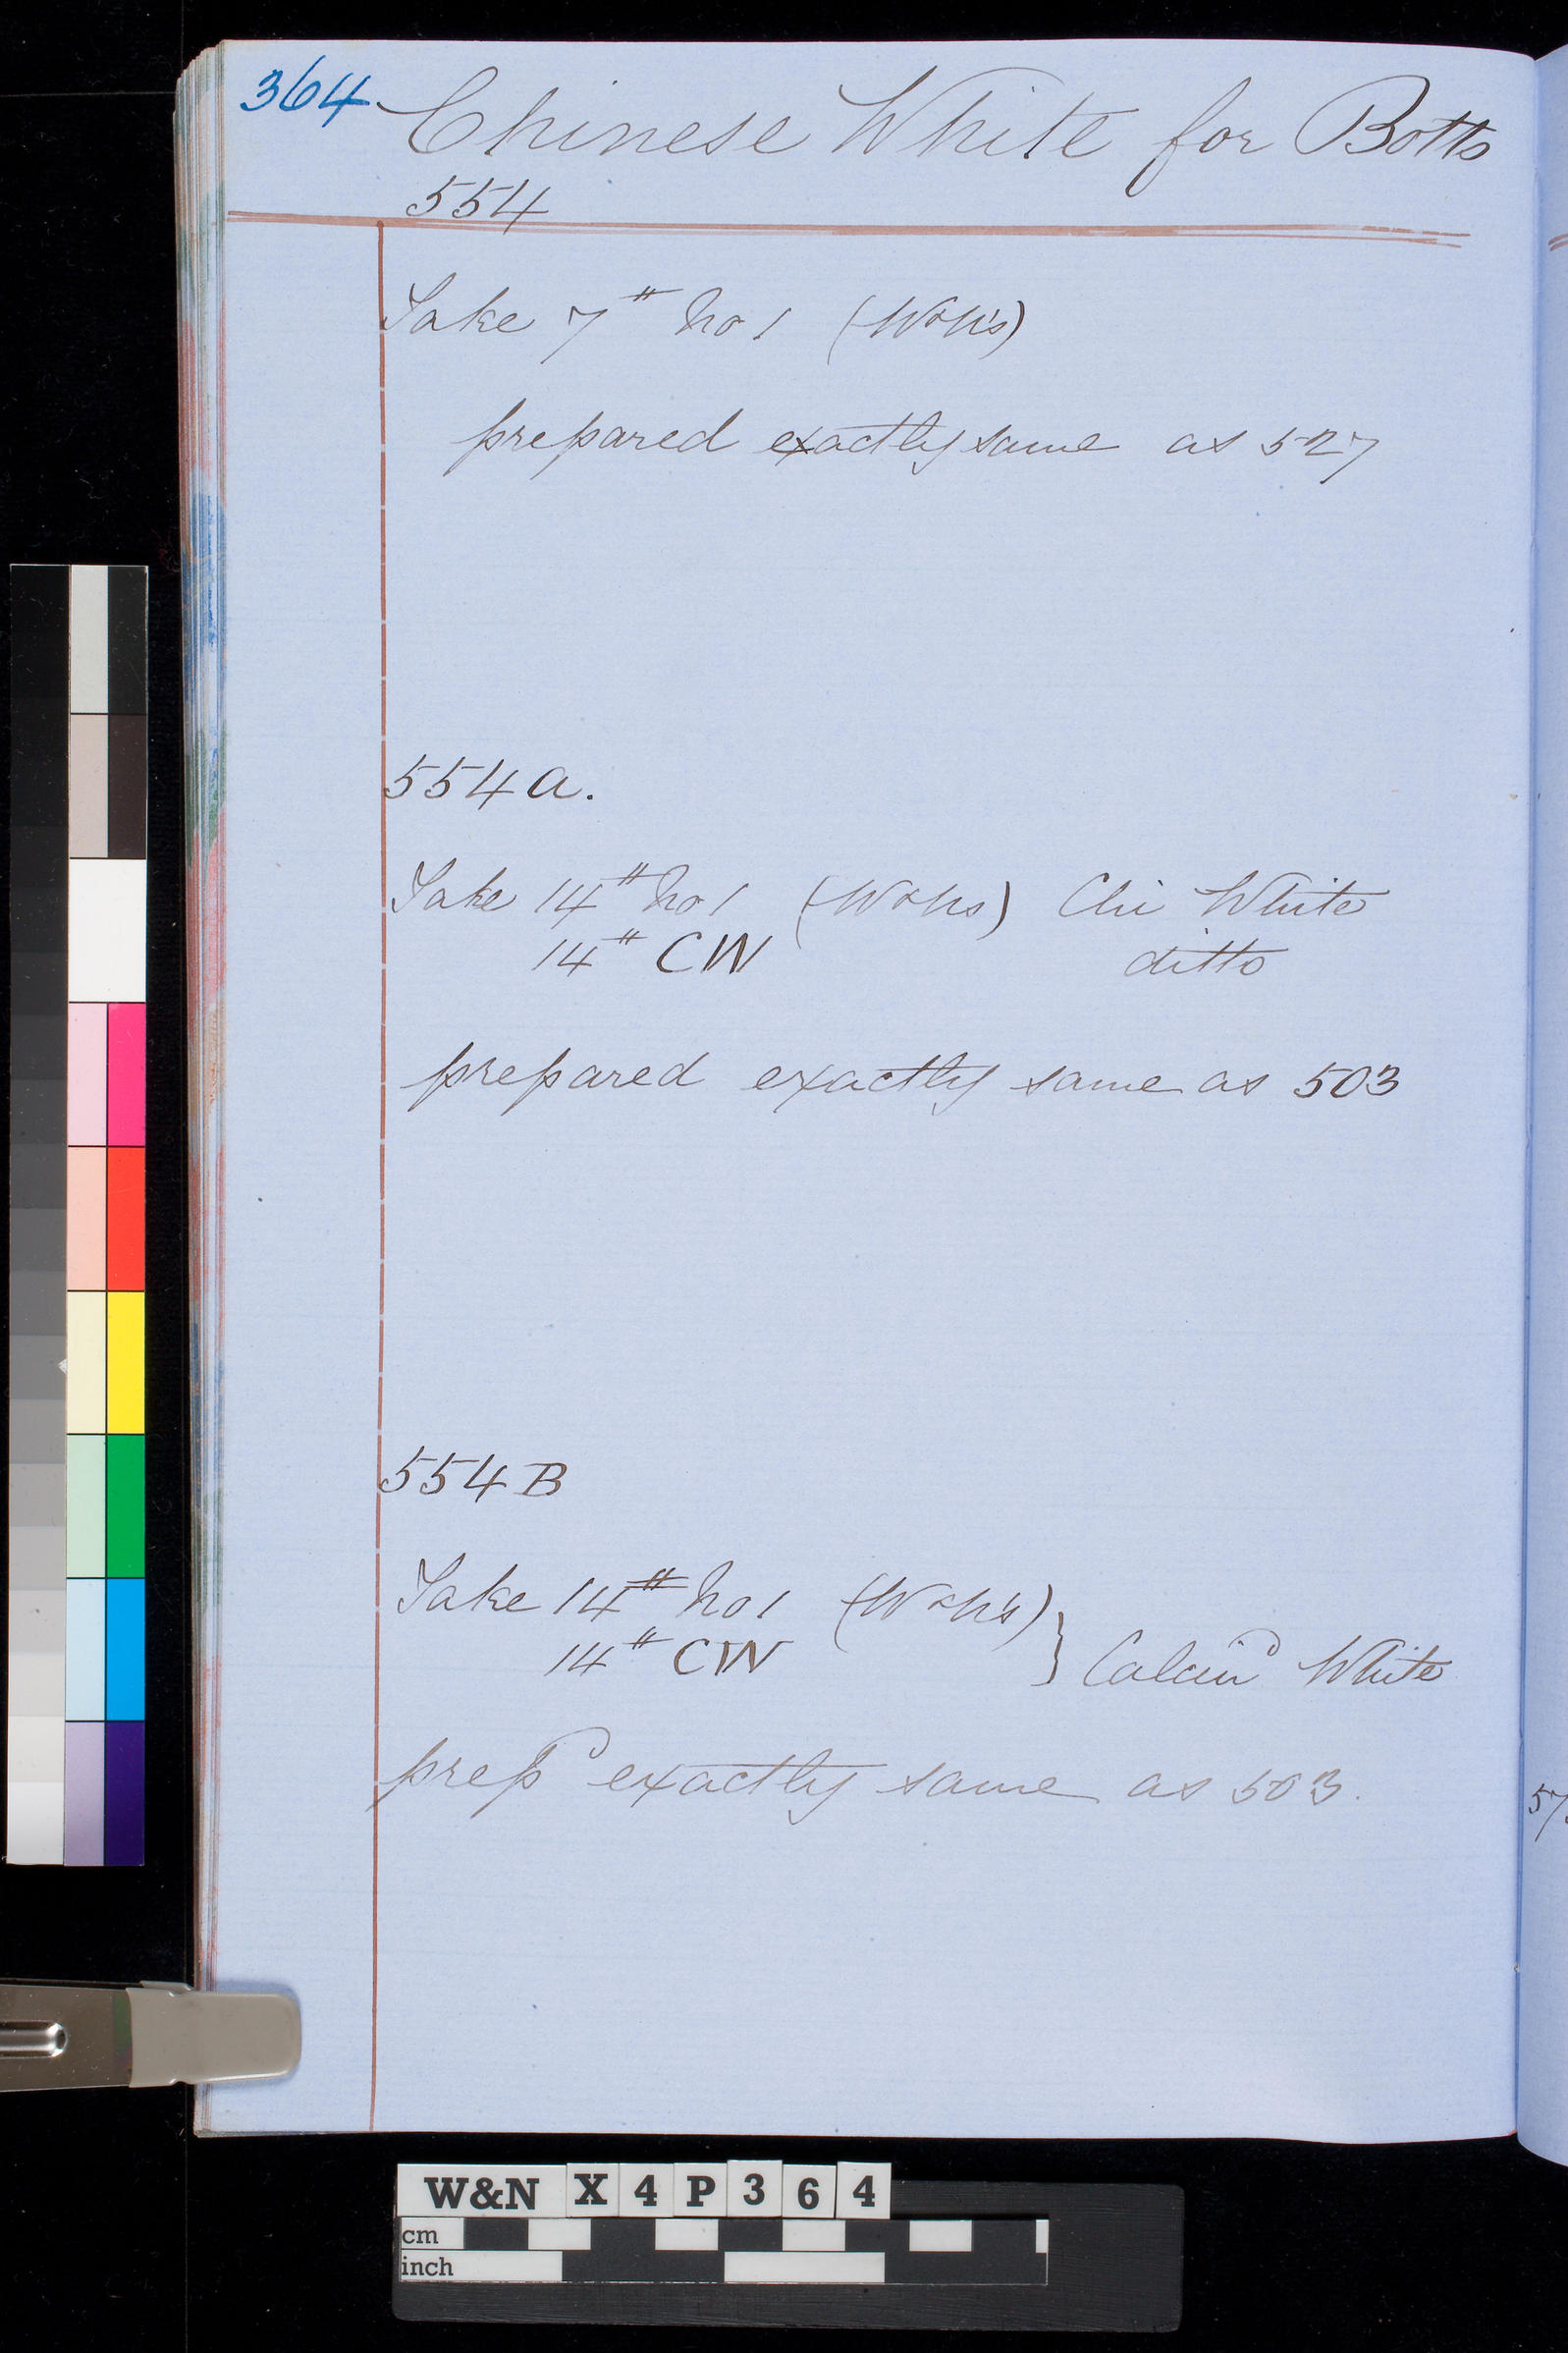 364 Chinese White for Botts
554
Take 7# No 1 (W&N's)
prepared exactly same as 527
554a.
Take 14# No 1 (W&Ns) Chi White
14# CW ditto
prepared exactly same as 503
554B
Take 14# No 1 (W&N's)
14# CW } Calcind White
prepd exactly same as 503.
57
W&N X 4 P 3 6 4
cm
inch